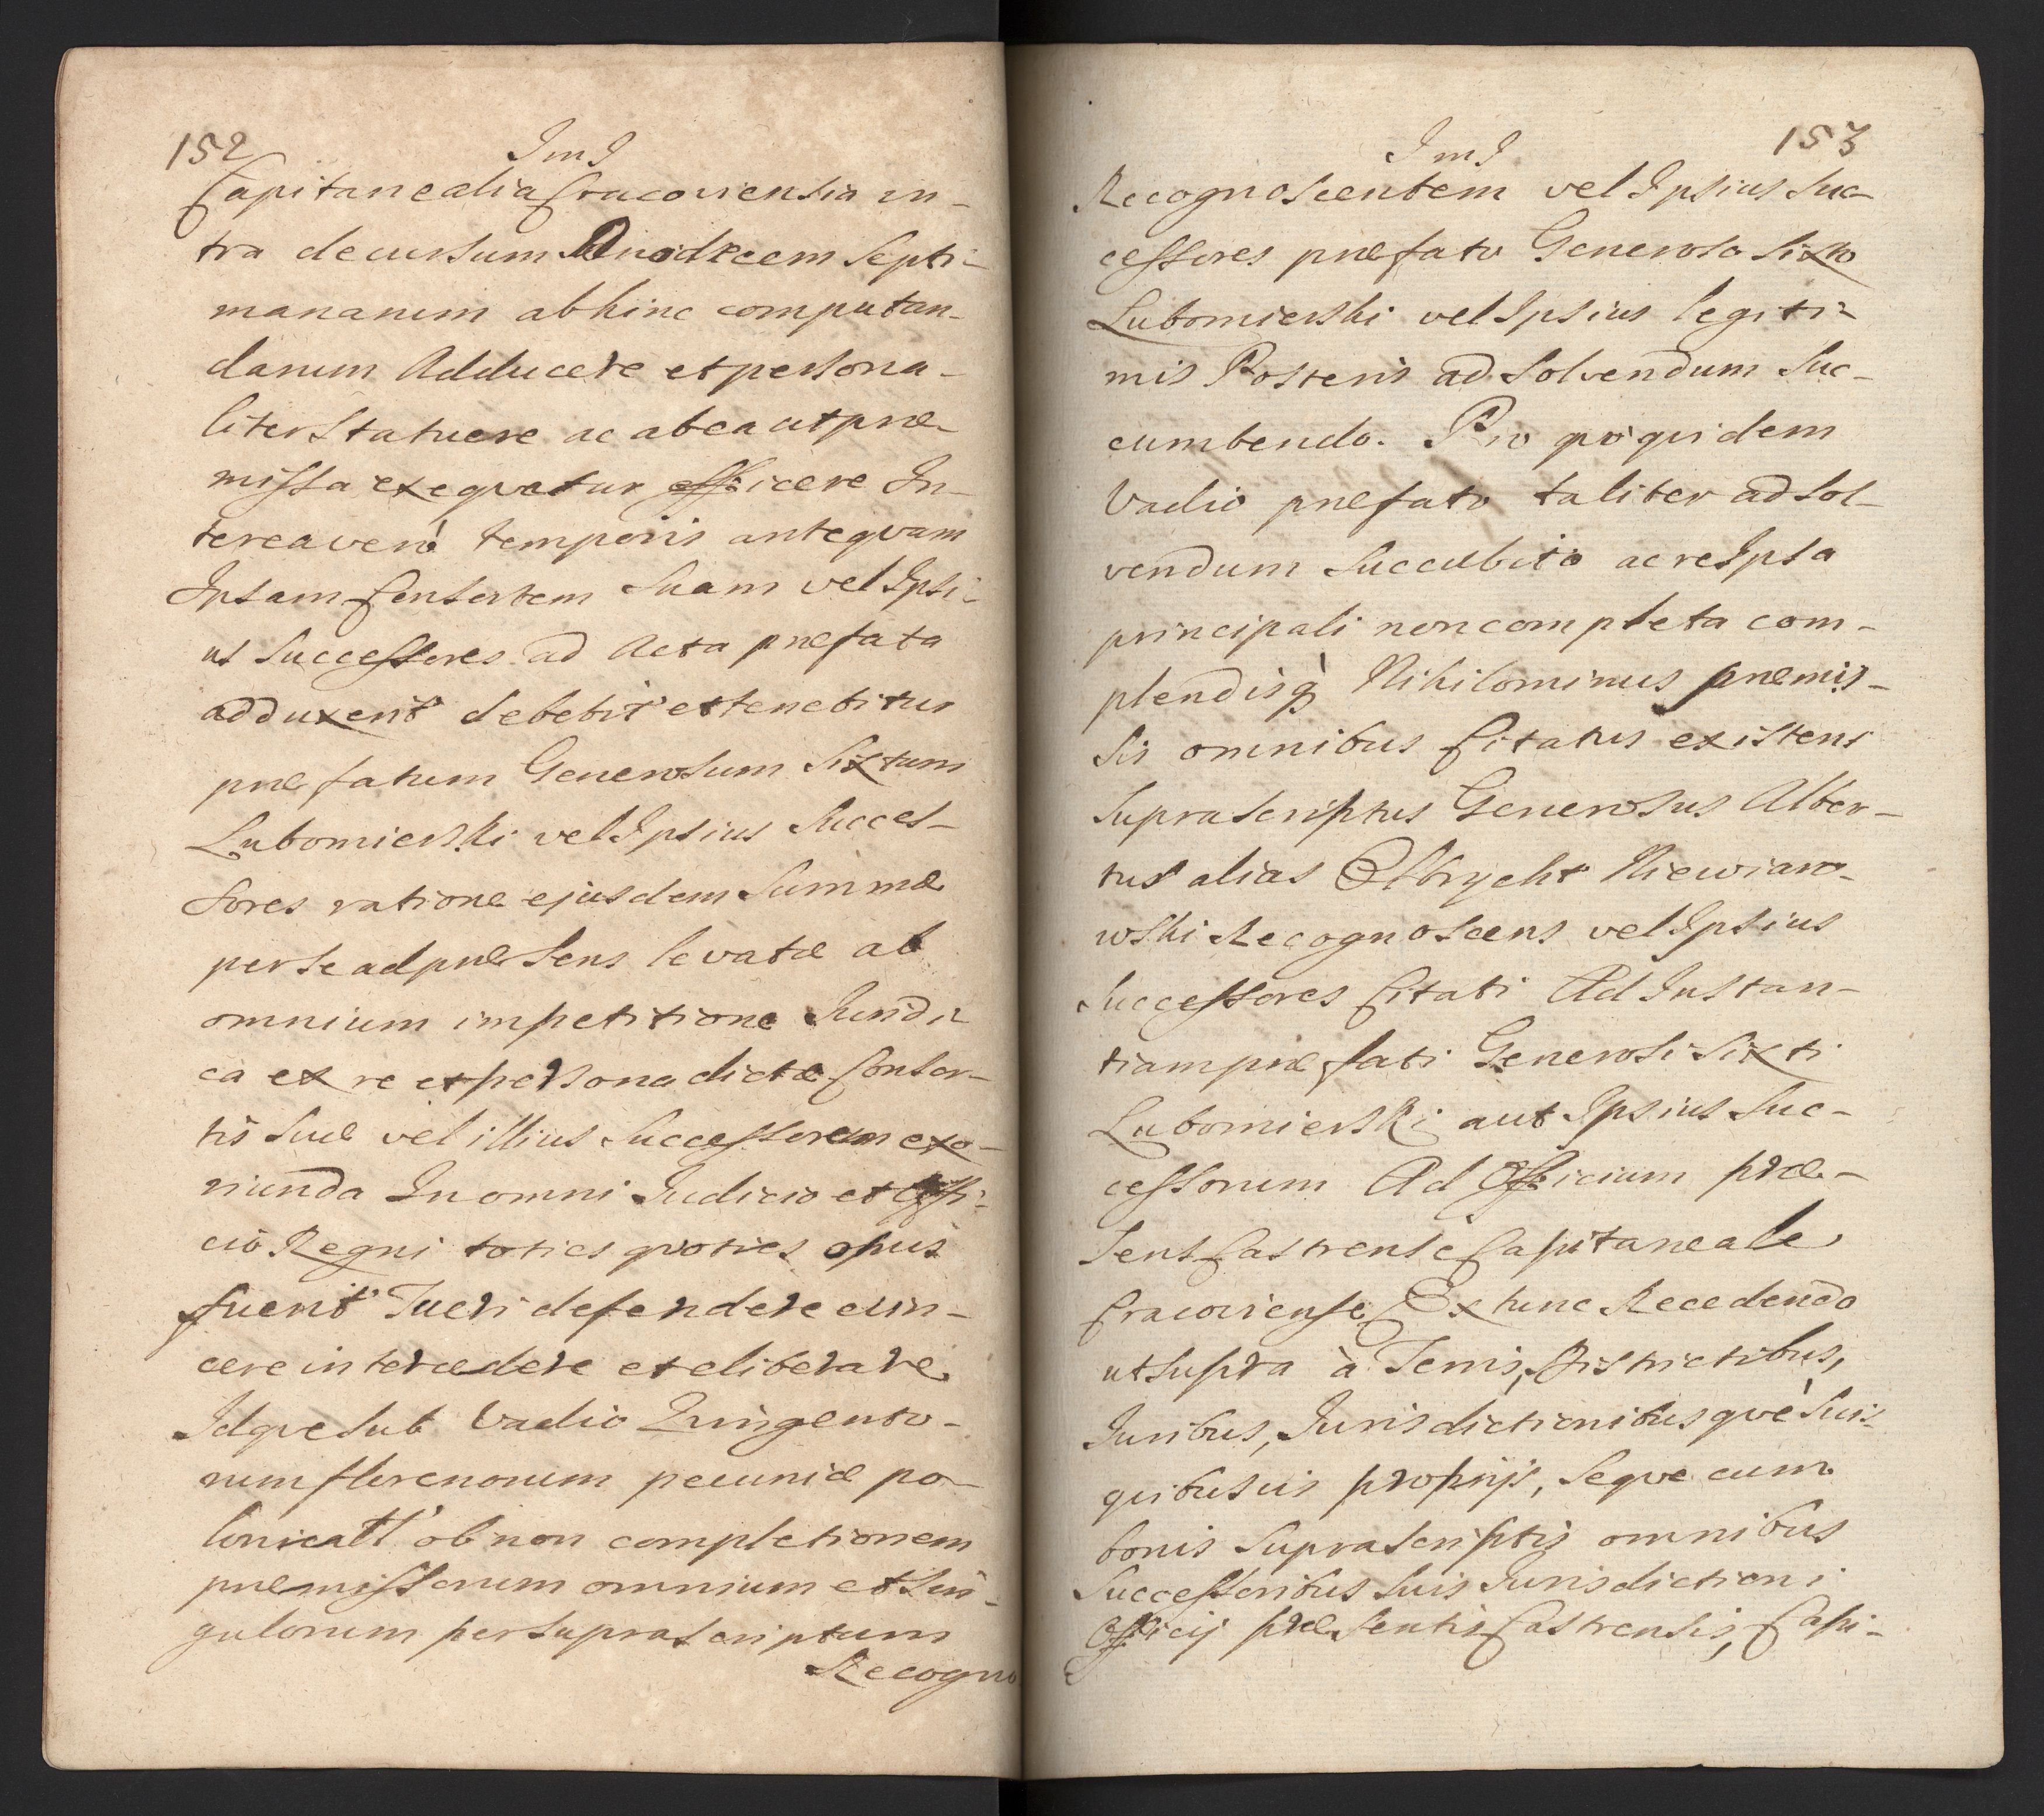 152
ImI
Capitanealia Cracoviensia in-
tra decursum Duodecem Septi-
manarum abhinc computan-
darum Adducere et persona-
liter Statuere ac ab ea ut præ-
missa exequatur efficere In-
terea verò temporis antequam
Ipsam Consortem Suam vel Ipsi-
us Successores ad Acta præfata
adduxerit debebit et tenebitur
præfatum Generosum Sixtum
Lubomierski vel Ipsius Succes-
sores ratione ejusdem Summæ
per se ad præsens levatæ ab
omnium impetitione Juridi-
ca ex re et persona dictæ Consor-
tis Suæ vel illius Successorum exo-
riunda In omni Judicio et Offi-
cio Regni toties quoties opus
fuerit Tueri defendere evin-
cere intercedere et eliberare
Idque Sub Vadio Quingento-
rum florenorum pecuniæ po-
lonicatt ob non completionem
præmissorum omnium et Sin-
gulorum per Suprascriptum
Recogno
ImI
153
Recognoscentem vel Ipsius Suc-
cessores præfato Generoso Sixto
Lubomierski vel Ipsius legiti-
mis Posteris ad Solvendum Suc-
cumbendo. Pro quoquidem
Vadio præfato taliter ad Sol-
vendum Succubito ac re Ipsa
principali non completa com-
plendisq̀ Nihilominus præmis-
sis omnibus Citatus existens
Suprascriptus Generosus Alber-
tus alias Olbrycht Niewiaro-
wski Recognoscens vel Ipsius
Successores Citati Ad Instan-
tiam præfati Generosi Sixti
Lubomierski aut Ipsius Suc-
cessorum Ad Officium præ-
sens Castrense Capitaneale
Cracoviense Ex tunc Recedendo
ut Supra à Terris, Districtibus,
Juribus, Jurisdictionibusquè Suis
quibusvis proprijs, Seque cum
bonis Suprascriptis omnibus
Successoribus Suis Jurisdictioni
Officij præsentis Castrensis, Capi-